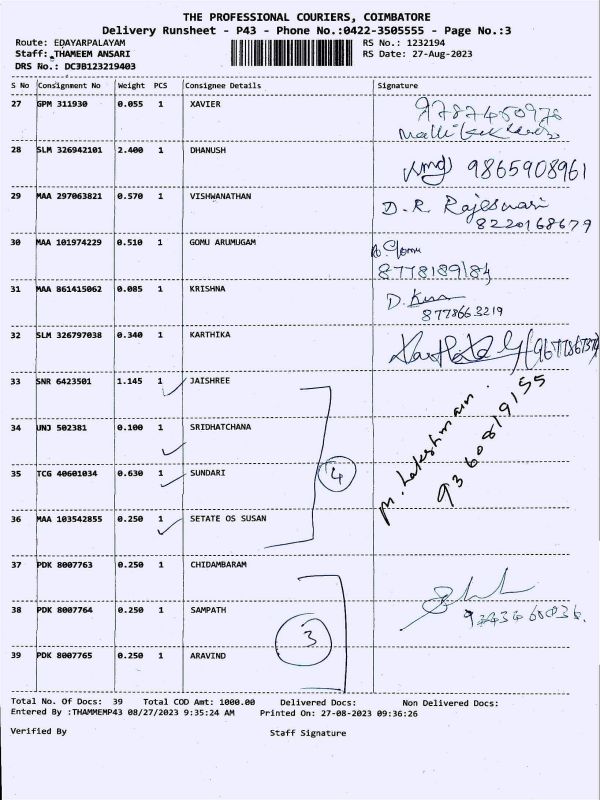 THE PROFESSIONAL COURIERS, COIMBATORE
Delivery Runsheet - P43 - Phone No.:0422-3505555 - Page No.:3
Route: EDAYARPALAYAM RS No.: 1232194
Staff: THAMEEM ANSARI RS Date: 27-Aug-2023
DRS No.: DC3B123219403
S No Consignment No Weight PCS Consignee Details Signature
27 GPM 311930 0.055 1 XAVIER
28 SLM 326942101 2.400 1 DHANUSH 9865908961
29 MAA 297063821 0.570 1 VISHWANATHAN D. R. Rajeswari
8220168679
30 MAA 101974229 0.510 1 GOMU ARUMUGAM
8778189184
31 MAA 861415062 0.085 1 KRISHNA D.
8778663219
32 SLM 326797038 0.340 1 KARTHIKA
33 SNR 6423501 1.145 1 JAISHREE
34 UNJ 502381 0.100 1 SRIDHATCHANA
9360819155
35 TCG 40601034 0.630 1 SUNDARI
4
36 MAA 103542855 0.250 1 SETATE OS SUSAN
37 PDK 8007763 0.250 1 CHIDAMBARAM
38 PDK 8007764 0.250 1 SAMPATH
3
39 PDK 8007765 0.250 1 ARAVIND
Total No. Of Docs: 39 Total COD Amt: 1000.00 Delivered Docs: Non Delivered Docs:
Entered By :THAMMEMP43 08/27/2023 9:35:24 AM Printed On: 27-08-2023 09:36:26
Verified By Staff Signature